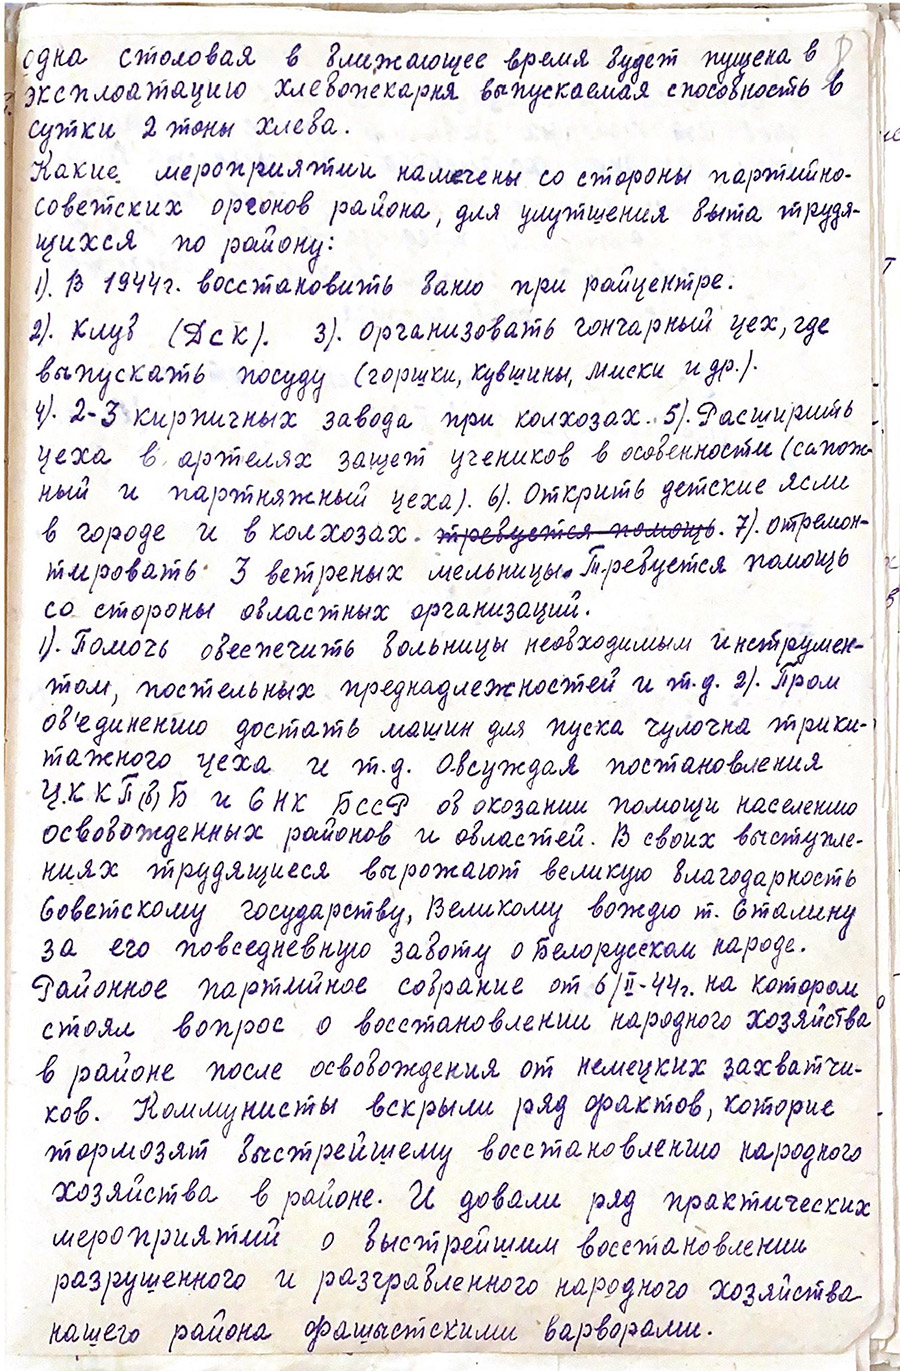 одна столовая в ближающее время будет пущена в
эксплоатацию хлебопекарня выпускаемая способность в
сутки 2 тоны хлеба.
Какие мероприятии намечены со стороны партийно-
советских оргонов района, для улутшения быта трудя-
щихся по району:
1). В 1944г. восстановить баню при райцентре.
2). Клуб (ДСК). 3). Организовать гончарный цех, где
выпускать посуду (горшки, кувшины, миски и др.).
4). 2-3 кирпичных завода при колхозах. 5). Расширить
цеха в артелях защет учеников в особенности (сапож-
ный и партняжный цеха). 6). Открить детские ясли
в городе и в колхозах. требуется помощь. 7). Отремон-
тировать 3 ветреных мельницы. Требуется помощь
со стороны областных организаций.
1). Помочь обеспечить больницы необходимым инструмен-
том, постельных преднадлежностей и т.д. 2). Пром
об'единению достать машин для пуска чулочна трики-
тажного цеха и т.д. Обсуждая постановления
Ц.К КП(б)Б и СНК БССР об окозании помощи населению
освобожденных районов и областей. В своих выступле-
ниях трудящиеся вырожают великую благодарность
Советскому государству, Великому вождю т. Сталину
за его повседневную заботу о Белорусском народе.
Районное партийное собрание от 6/II-44г. на котором
стоял вопрос о восстановлении народного хозяйства
в районе после освобождения от немецких захватчи-
ков. Коммунисты вскрыли ряд фактов, которие
тормозят быстрейшему восстановлению народного
хозяйства в районе. И довали ряд практических
мероприятий о быстрейшим восстановлении
разрушенного и разграбленного народного хозяйства
нашего района фашыстскими варворами.